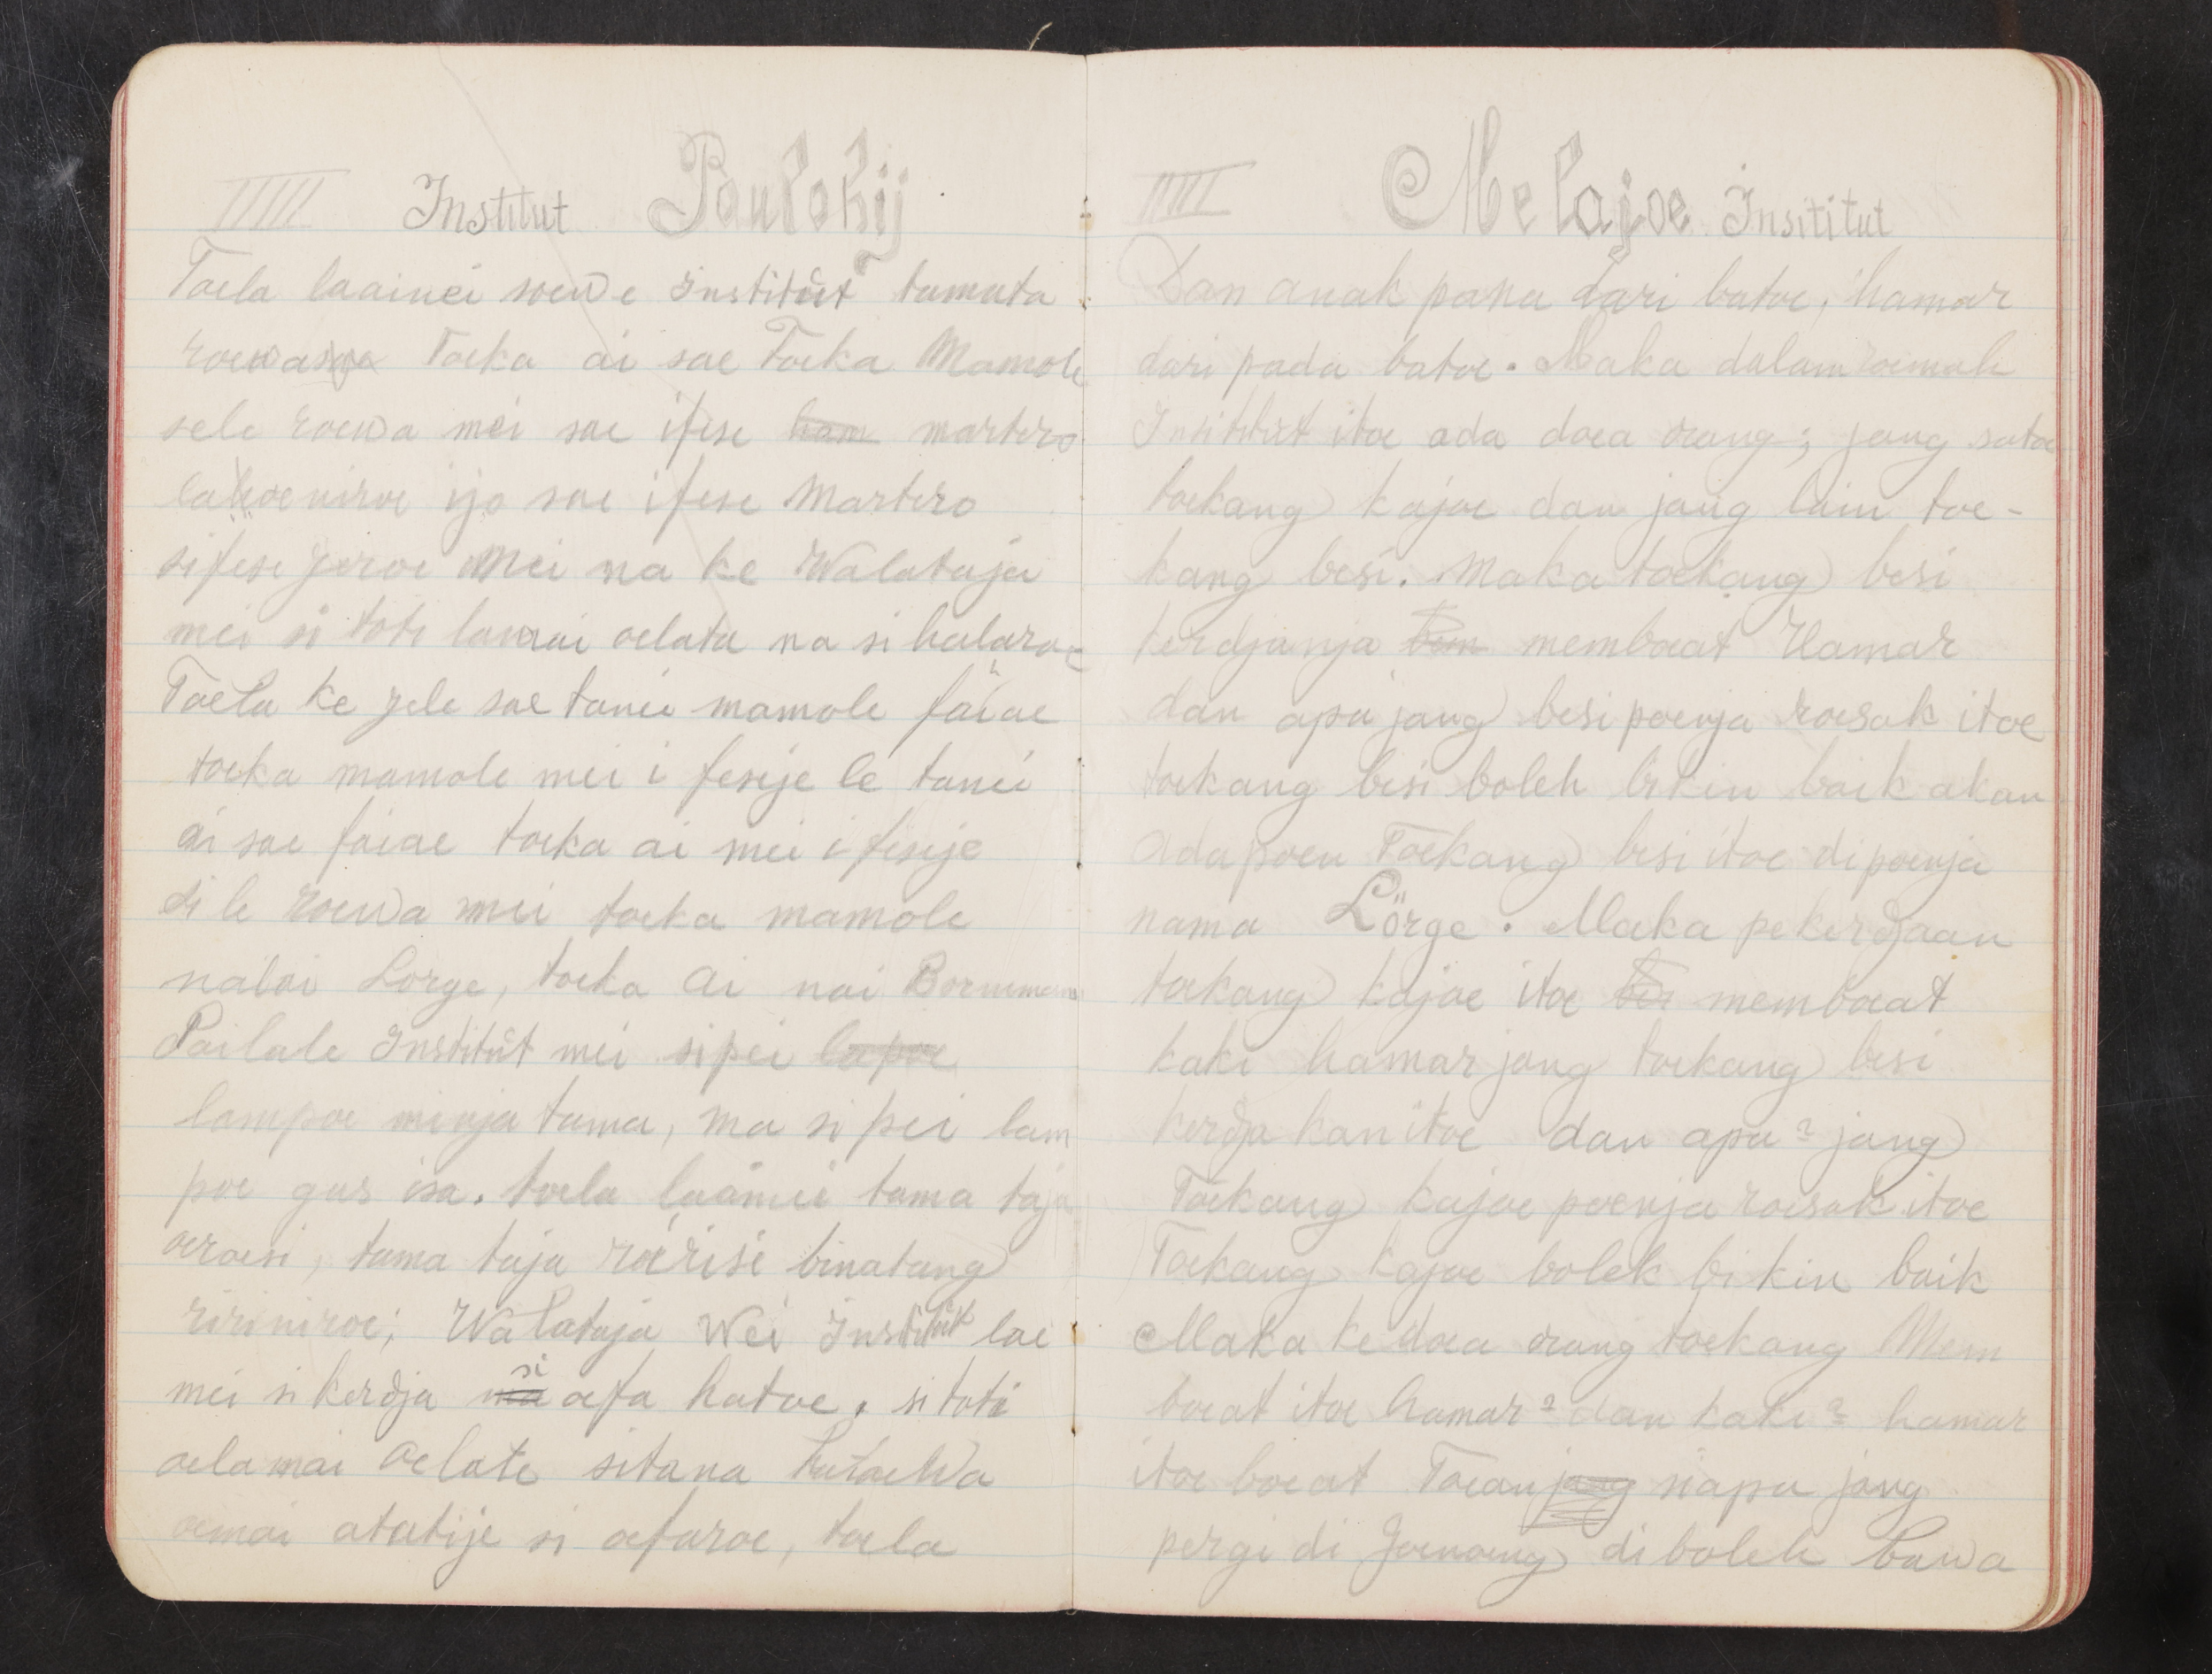 IIIII Institut Paulohij
Toela laainei soewe Institüt tamata
roewa Toeka ai sae Toeka Mamole
sele roewa mei sae ifese ham martero
ijo sae ifese Martero
sifese jeroe mei na ke Walataja
mei si toti lamai oelata na si halaroe
Toela ke jele sae tanei mamole faiae
toeka mamole mei i fesije le tanei
ai sae faiae toeka ai mei i fesije
si le roewa mei toeka mamole
nalai Lorge, toeka ai nai Bornemann
Pailale Institüt mei sipei lapoe
lampoe minja tama, ma si pei lam
poe gas isa. toela laamei tama taja
oeroesi, tama taja roerisi binatang
ririniroe; Walataja Wei Institüt lae
mei si kerdja na si oefa hatoe, si toti
oelamai oelate sitana hataewa
oemai atatije si oefaroe, toela
IIIII Melajoe Insititut
Dan anak pana dari batoe, hamar
dari pada batoe. Maka dalam roemah
Institüt itoe ada doea orang; jang satoe
toekang kajoe dan jang lain toe-
kang besi. Maka toekang besi
kerdjanja bem memboeat Hamar
dan apa jang besi poenja roesak itoe
toekang besi boleh bikin baik akan
Adapoen Toekang besi itoe dipoenja
nama Lörge. Maka pekerdjaan
toekang kajoe itoe bei memboeat
kaki hamar jang toekang besi
kerdja kan itoe dan apa2 jang
Toekang kajoe poenja roesak itoe
Toekang kajoe boleh bikin baik
Maka ke doea orang toekang Mem
boeat itoe hamar2 dan kaki2 hamar
itoe boeat Toean jang siapa jang
pergi di Goenoeng di boleh bawa